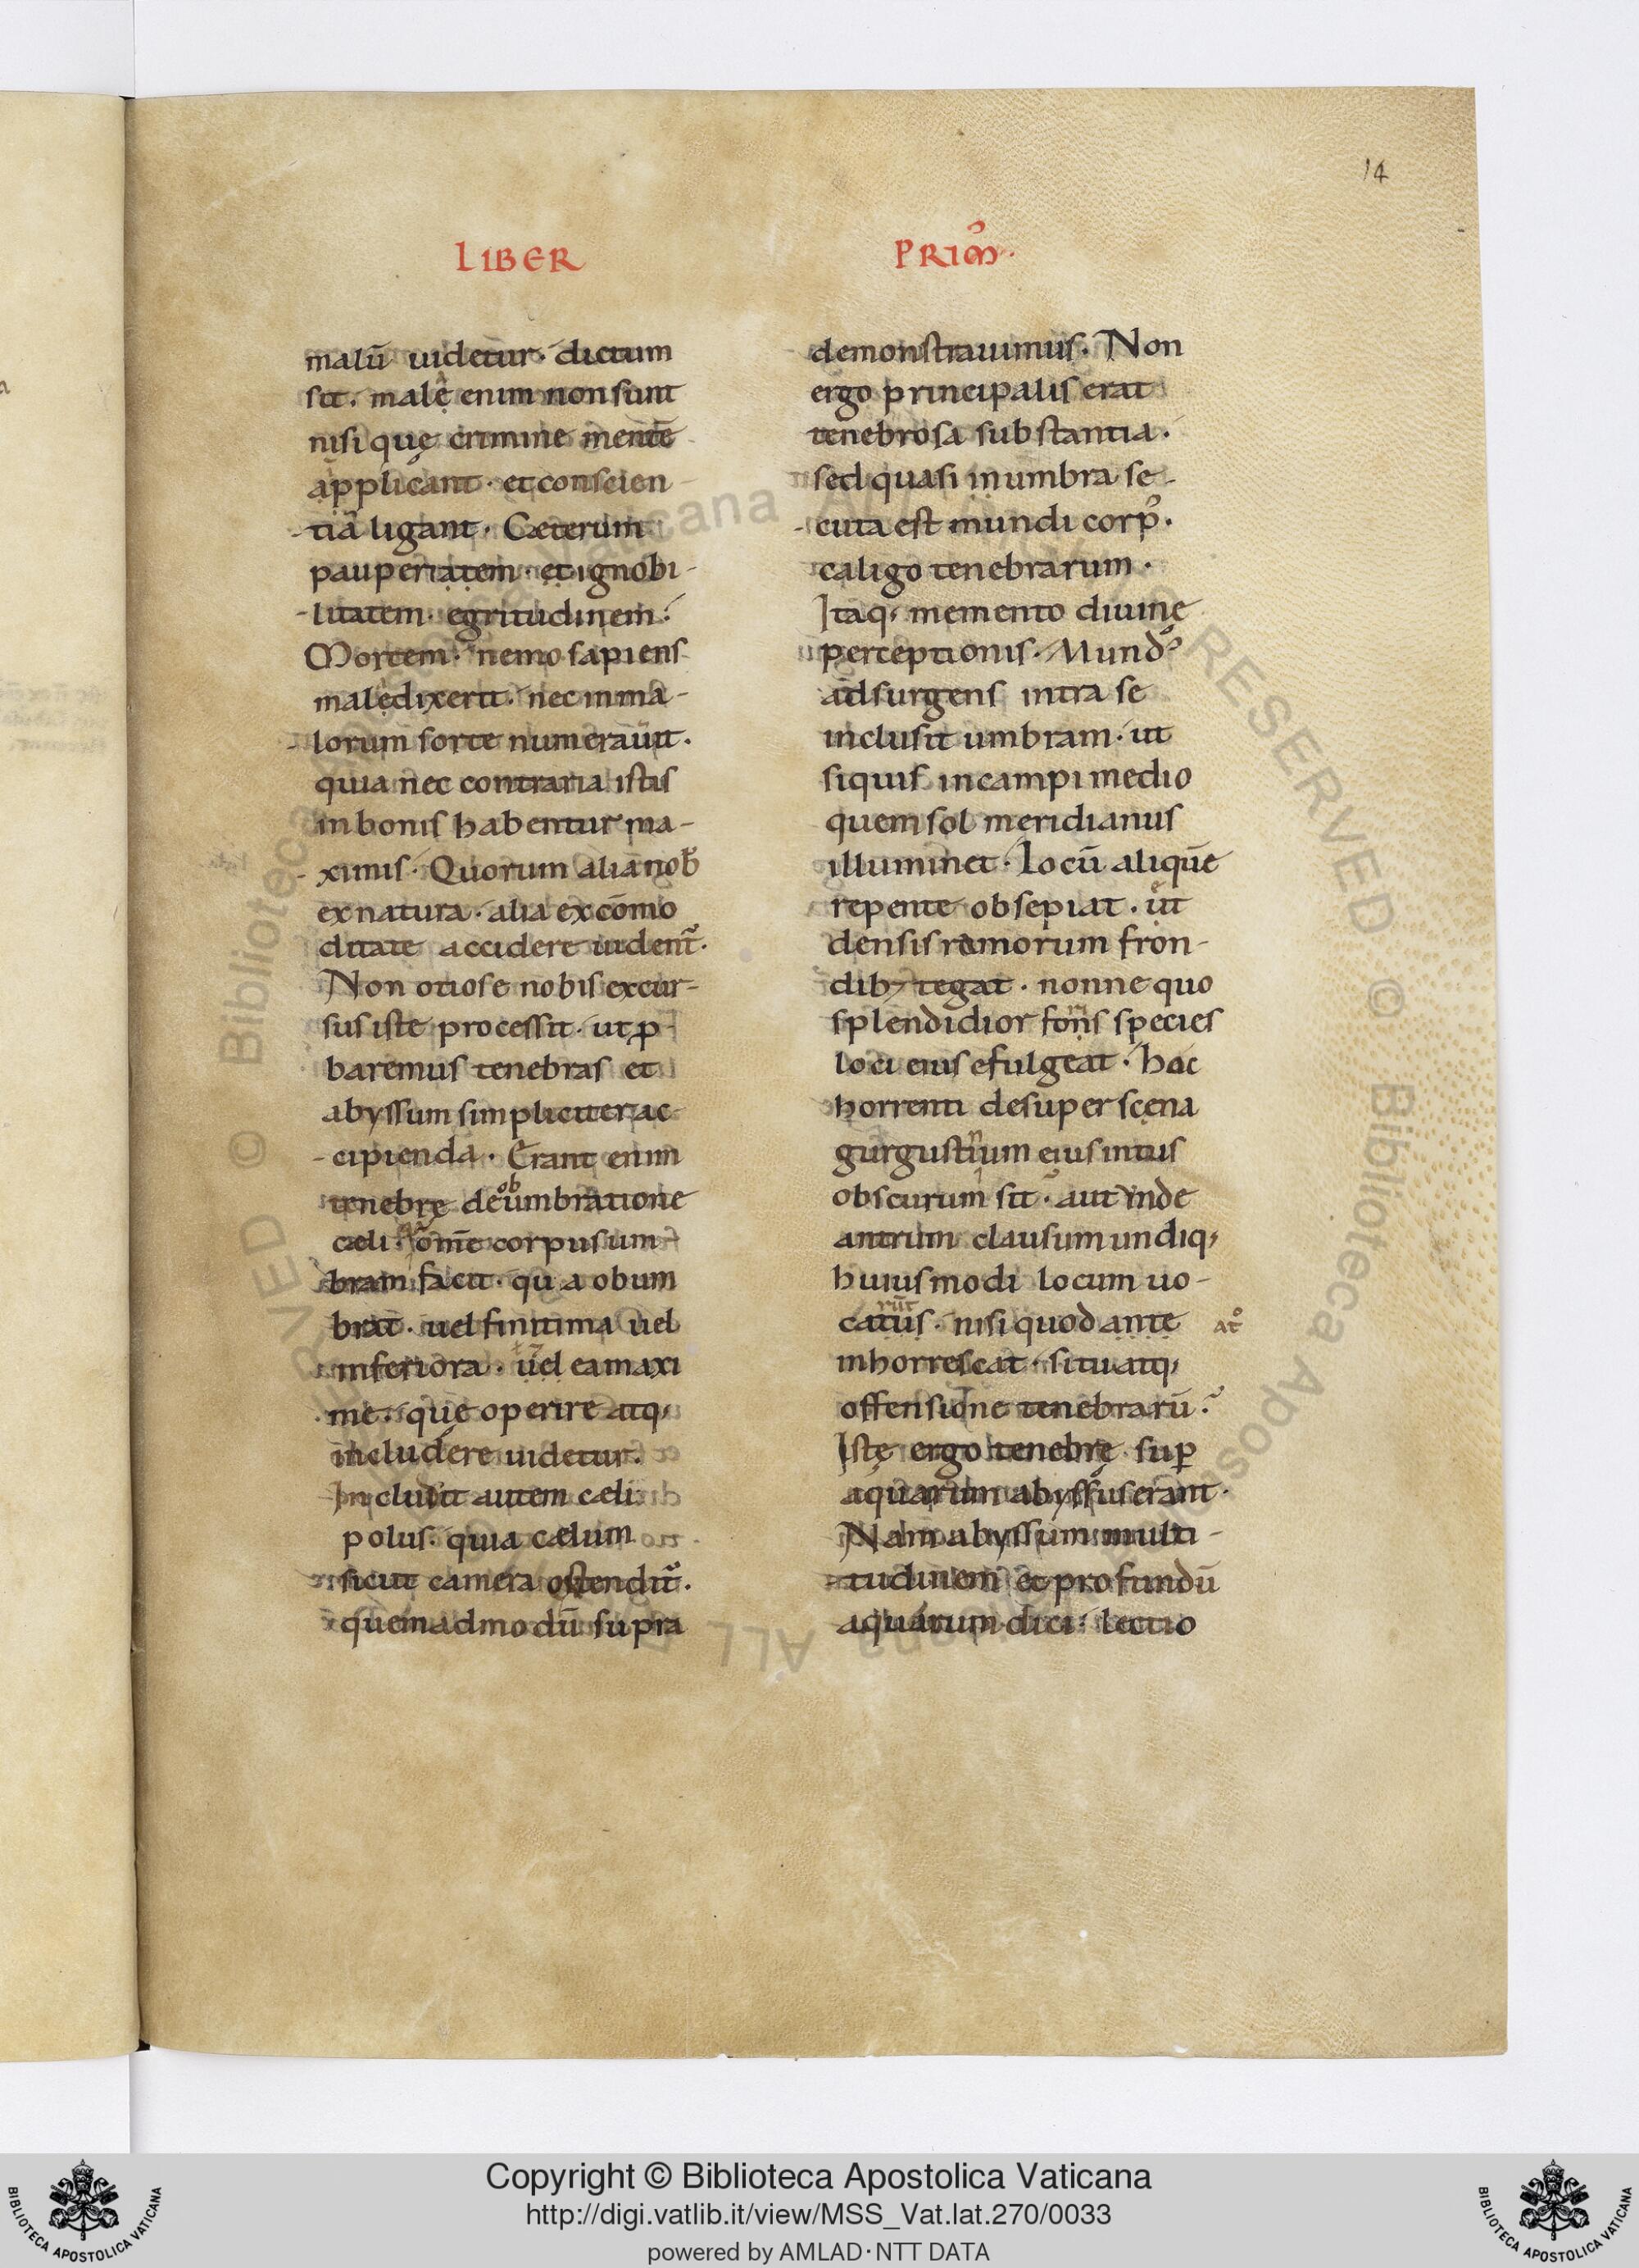 14
LIBER
PRIMꝰ.
malū uidetur· dictum
sit. malę enim non sunt
nisi quę crimine mentē
applicant· et conscien
tiā ligant. Cæterum
paupertatem· et ignobi-
litatem· egritudinem·
Mortem· nemo sapiens
maledixerit· nec in ma-
lorum sorte numerauit.
quia nec contraria istis
in bonis habentur ma-
ximis. Quorum alia nob̄
ex natura· alia ex cōmo
ditate accidere uident̃.
Non otiose nobis excur-
sus iste processit· ut ꝓ
baremus tenebras et
abyssum simpliciter ac
cipienda. Erant enim
tenebrę de obumbratione
cæli. omē corpus um-
bram facit· qua obum
brat· uel finitima uel
inferiora· uel ea maxi
me· quę operire atq;
includere uidetur.
Includit autem cæli
polus· quia cælum
sicut camera ostendit̃.
quemadmodū supra
demonstrauimus. Non
ergo principalis erat
tenebrosa substantia.
sed quasi in umbra se-
cuta est mundi corpꝰ.
caligo tenebrarum.
Itaq; memento diuinę
perceptionis. Mundꝰ
adsurgens intra se
inclusit umbram· ut
siquis in campi medio
quem sol meridianus
illuminet. Locū aliquē
repente obsepiat. ut
densis ramorum fron-
dib; tegat. nonne quo
splendidior foris species
loci eius efulgeat. hoc
horrenti desuper scena
gurgustium eius intus
obscurum sit· aut unde
antrum clausum undiq;
huiusmodi locum uo-
catus· nisi quod ante
at̊
inhorrescat· situ atq;
offensione tenebrarū.
Istę ergo tenebrę suꝑ
aquarum abyssus erant.
Nam abyssum multi-
tudinem et profundū
aquarum dici· lectio
Copyright © Biblioteca Apostolica Vaticana
http://digi.vatlib.it/view/MSS_Vat.lat.270/0033
powered by AMLAD·NTT DATA
BIBLIOTECA APOSTOLICA VATICANA
BIBLIOTECA APOSTOLICA VATICANA